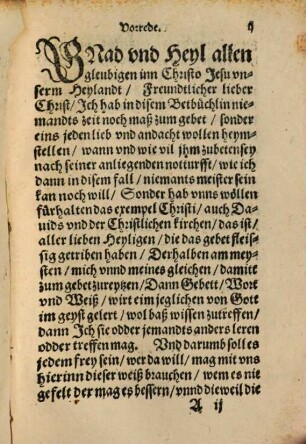 Vorrede.
GNad vnd Heyl allen
gleubigen inn Christo Jesu vn-
serm Heylandt / Freundtlicher lieber
Christ / Ich hab in disem Betbüchlin nie-
mandts zeit noch maß zum gebet / sonder
eins jeden lieb vnd andacht wollen heym-
stellen / wann vnd wie vil jhm zubeten sey
nach seiner anliegenden notturfft / wie ich
dann in disem fall / niemants meister sein
kan noch will / Sonder hab vnns wöllen
fürhalten das exempel Christi / auch Da-
uids vnd der Christlichen kirchen / das ist /
aller lieben Heyligen / die das gebet fleis-
sig getriben haben / Derhalben am mey-
sten / mich vnnd meines gleichen / damitt
zum gebet zureytzen / Dann Gebett / Wort
vnd Weiß / wirt eim jeglichen von Gott
im geyst gelert / wol baß wissen zutreffen /
dann Ich sie odder jemandts anders leren
odder treffen mag. Vnd darumb soll es
jedem frey sein / wer da will / mag mit vns
hierinn dieser weiß brauchen / wem es nit
gefelt der mag es bessern / vnnd dieweil die
A ij